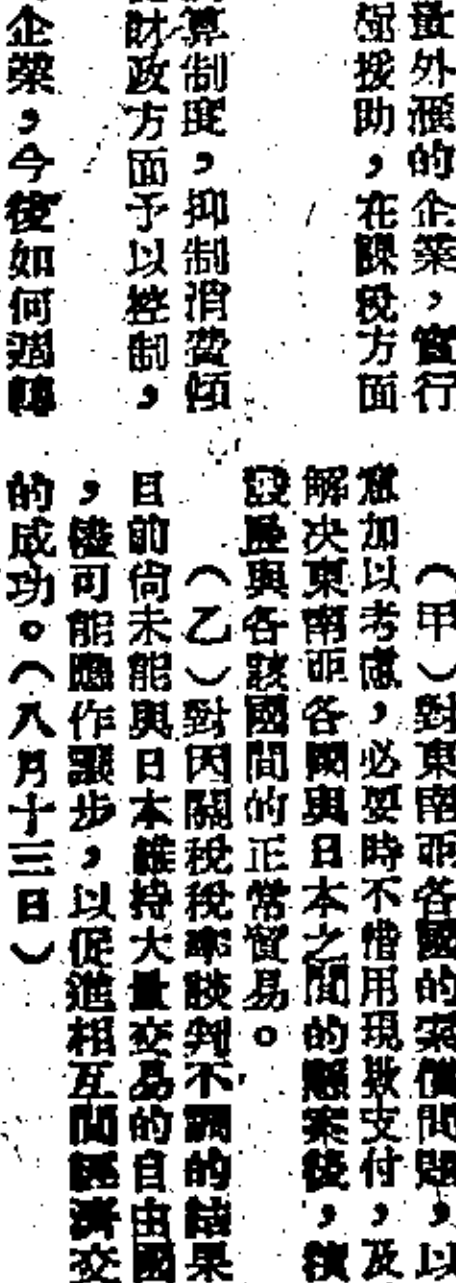 量外滙的企業，實行
援助，在課稅方面
算制度，抑制消費傾
財政方面予以控制，
企業，今後如何週轉
（甲）對東南亞各國的索償問題，以
意加以考慮，必要時不惜用現款支付，及
解決東南亞各國與日本之間的懸案後，積
設法與各該國間的正常貿易。
（乙）對因關稅稅率談判不調的結果
目前尙未能與日本維持大量交易的自由國
，儘可能應作讓步，以促進相互間經濟交
的成功。（八月十三日）